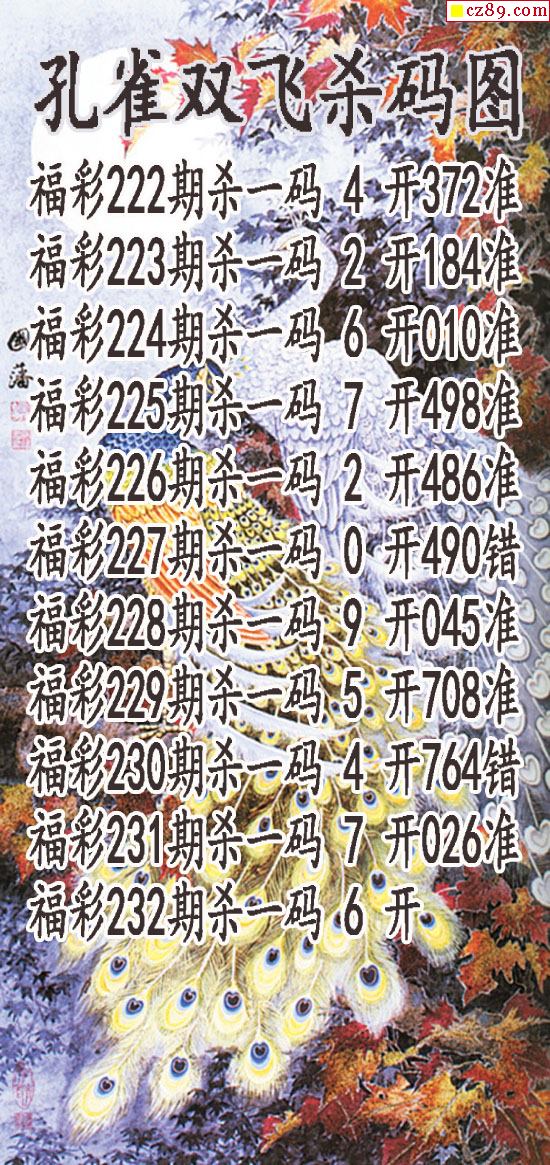 cz89.com
孔雀双飞杀码图
福彩222期杀一码 4 开372准
福彩223期杀一码 2 开184准
福彩224期杀一码 6 开010准
福彩225期杀一码 7 开498准
福彩226期杀一码 2 开486准
福彩227期杀一码 0 开490错
福彩228期杀一码 9 开045准
福彩229期杀一码 5 开708准
福彩230期杀一码 4 开764错
福彩231期杀一码 7 开026准
福彩232期杀一码 6 开
國藩